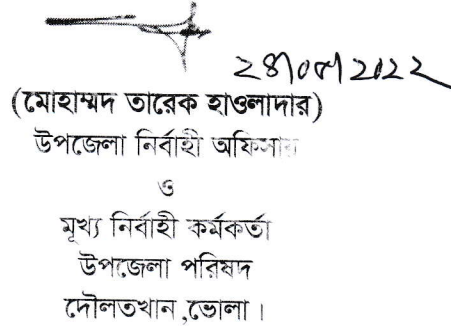 ২৪/০৫/2022
(মোহাম্মদ তারেক হাওলাদার)
উপজেলা নির্বাহী অফিসার
ও
মূখ্য নির্বাহী কর্মকর্তা
উপজেলা পরিষদ
দৌলতখান,ভোলা।